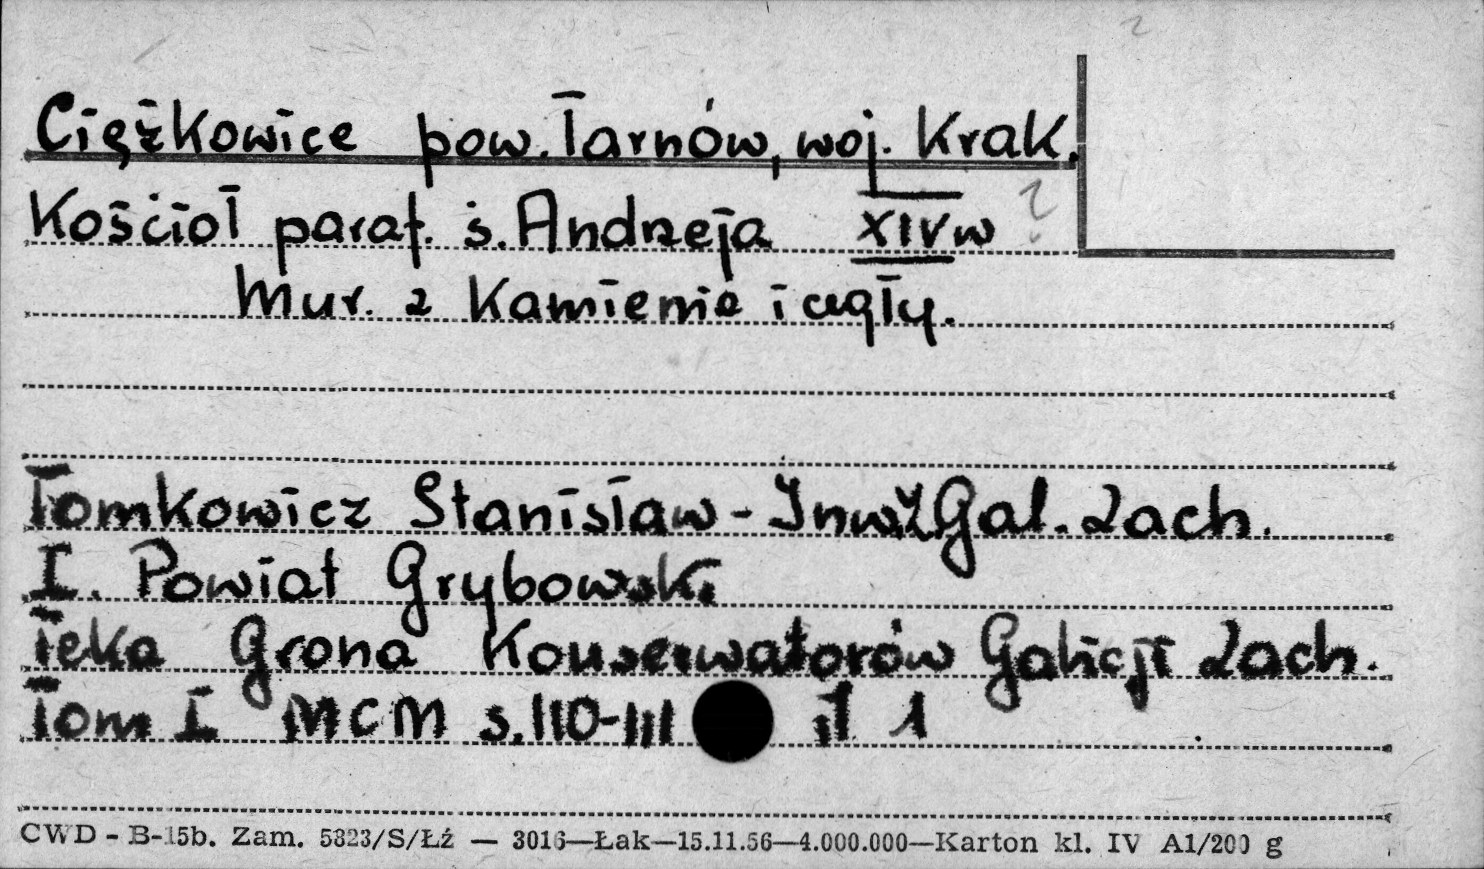 Ciężkowice pow. Tarnów, woj. Krak.
Kościół paraf. ś. Andrzeja XIV w ?
Mur. z kamienia i cegły.
Tomkowicz Stanisław - Inwż Gal. Zach.
I. Powiat Grybowski
Teka Grona Konserwatorów Galicji Zach.
Tom I MCM s. 110-111 il 1
CWD - B-15b. Zam. 5823/S/Łź — 3016—Łak—15.11.56—4.000.000—Karton kl. IV A1/200 g